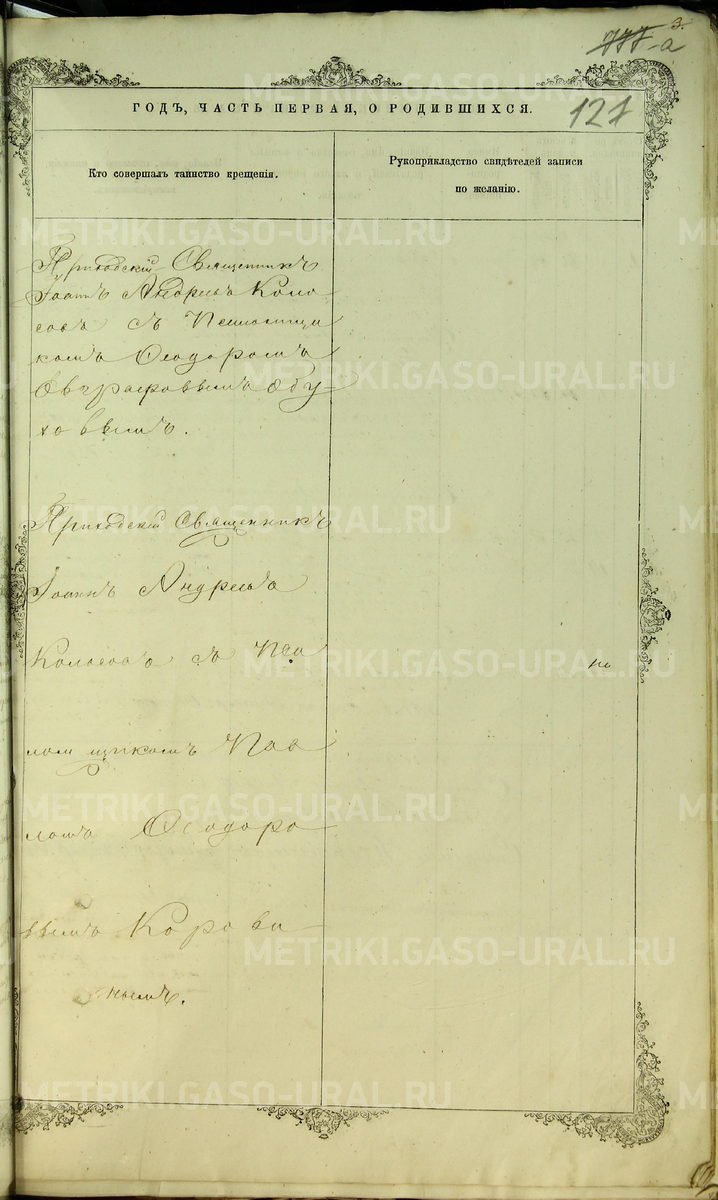 3.
777-а
127
ГОДЪ, ЧАСТЬ ПЕРВАЯ, О РОДИВШИХСЯ.
Кто совершалъ таинство крещенія.
Рукоприкладство свидѣтелей записи
по желанію.
Приходскій Священникъ
Іоаннъ Андреевъ Коло-
совъ съ Псаломщи
комъ Ѳеодоромъ
Евграфовымъ Обу-
ховымъ.
Приходскій Священникъ
Іоаннъ Андреевъ
Колосовъ съ Пса
ломщикомъ Пав
ломъ Ѳеодоро
вымъ Корови-
нымъ.
METRIKI.GASO-URAL.RU